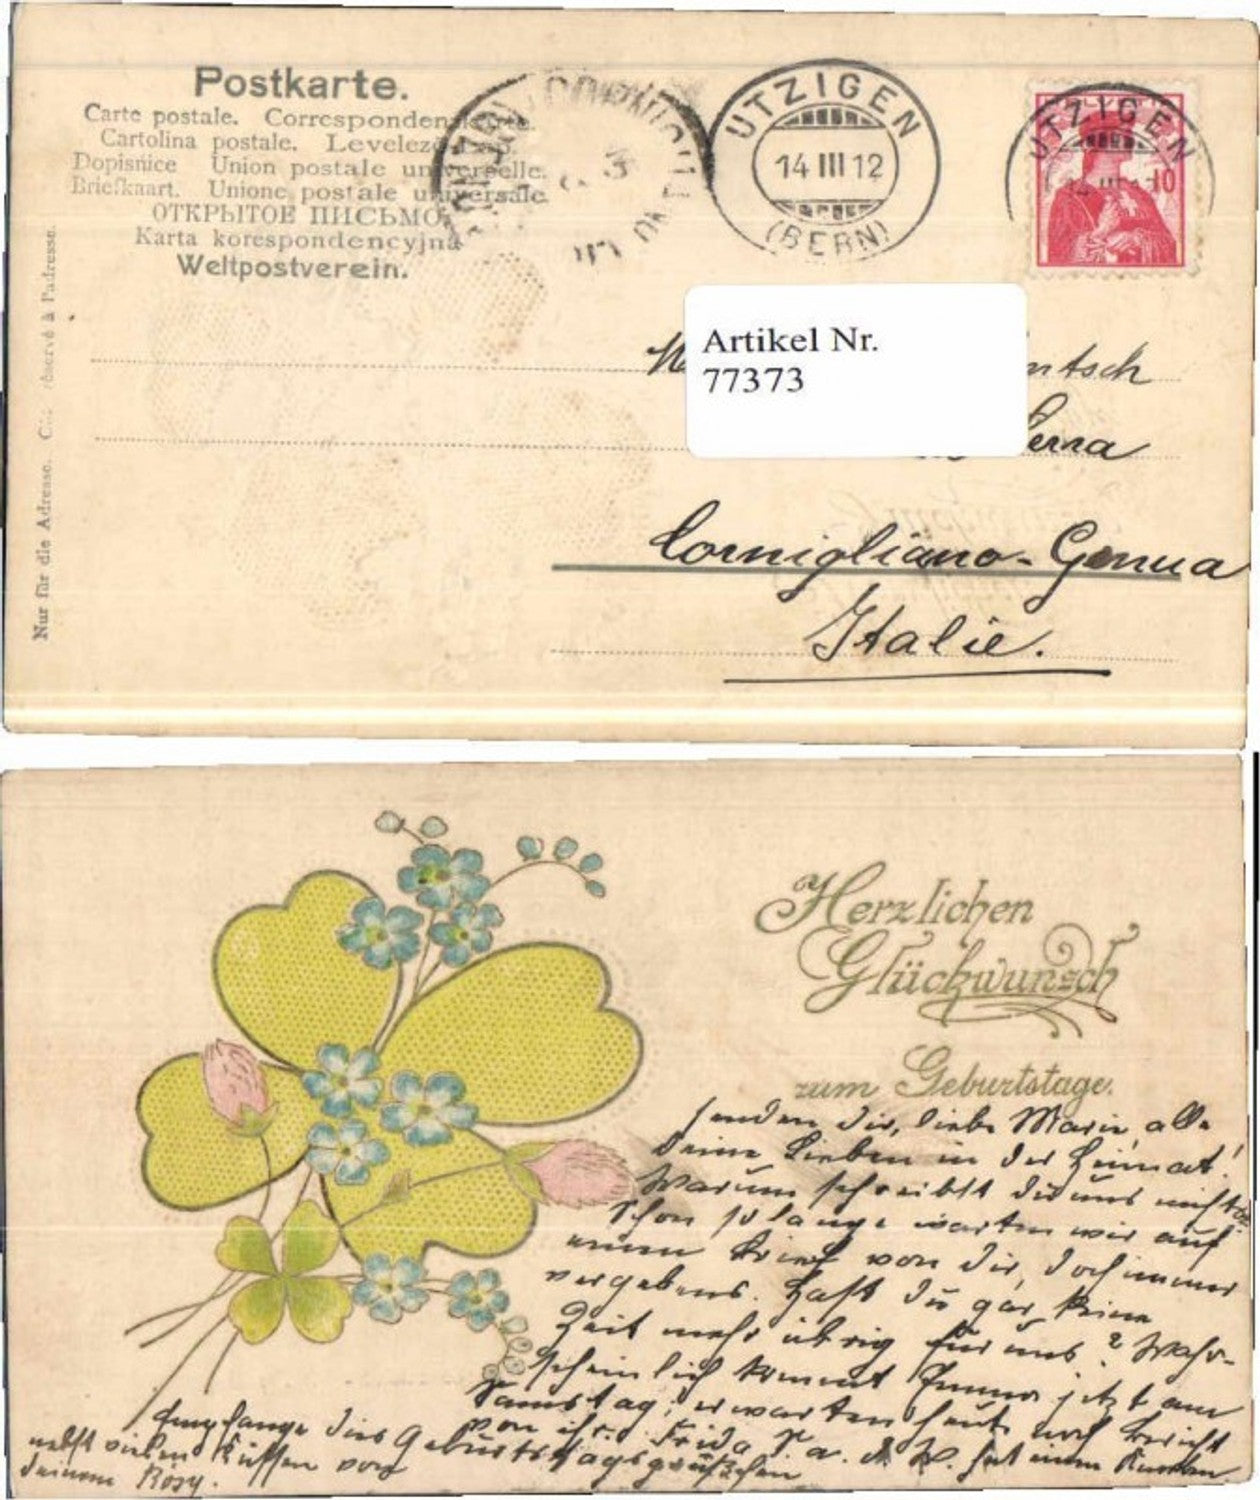 Postkarte.
Carte postale. Correspondenzkarte.
Cartolina postale. Levelező-Lap.
Dopisnice Union postale universelle.
Briefkaart. Unione postale universale.
ОТКРЫТОЕ ПИСЬМО.
Karta korespondencyjna
Weltpostverein.
Nur für die Adresse. Côté réservé à l'adresse.
UTZIGEN
14 III 12
(BERN)
UTZIGEN
HELVETIA
10
Artikel Nr.
77373
ntsch
erra
Cornigliano-Genua
Italie.
Herzlichen
Glückwunsch
zum Geburtstage.
senden dir, liebe Marie, alle
deine Lieben in der Heimat!
Warum schreibst du uns nicht
Schon so lange warten wir auf
einen Brief von dir, doch immer
vergebens. Hast du gar keine
Zeit mehr übrig für uns? Wahr-
scheinlich kommt Emma jetzt am
Samstag; erwarten heute noch Bericht
von ihr. Frida S. a. d. W. hat einen Knaben.
Empfange dies Geburtstagsgrüßchen
nebst vielen Küssen von
deinem Rosy.